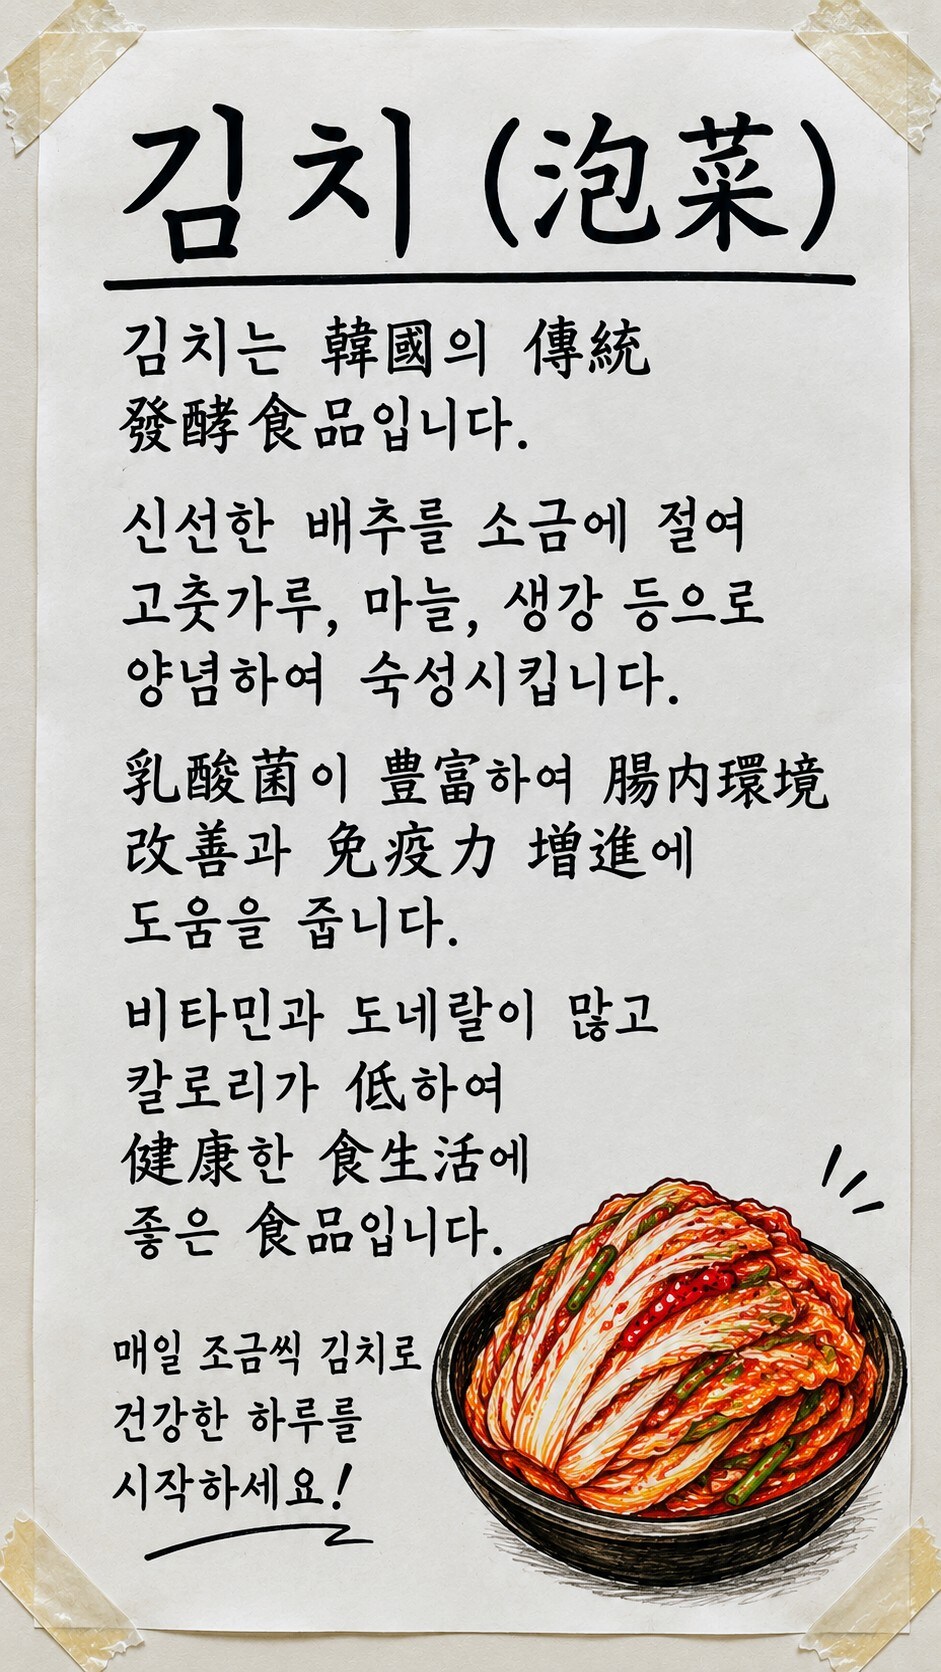 김치 (泡菜)
김치는 韓國의 傳統
發酵食品입니다.
신선한 배추를 소금에 절여
고춧가루, 마늘, 생강 등으로
양념하여 숙성시킵니다.
乳酸菌이 豊富하여 腸内環境
改善과 免疫力 増進에
도움을 줍니다.
비타민과 도네랄이 많고
칼로리가 低하여
健康한 食生活에
좋은 食品입니다.
매일 조금씩 김치로
건강한 하루를
시작하세요!